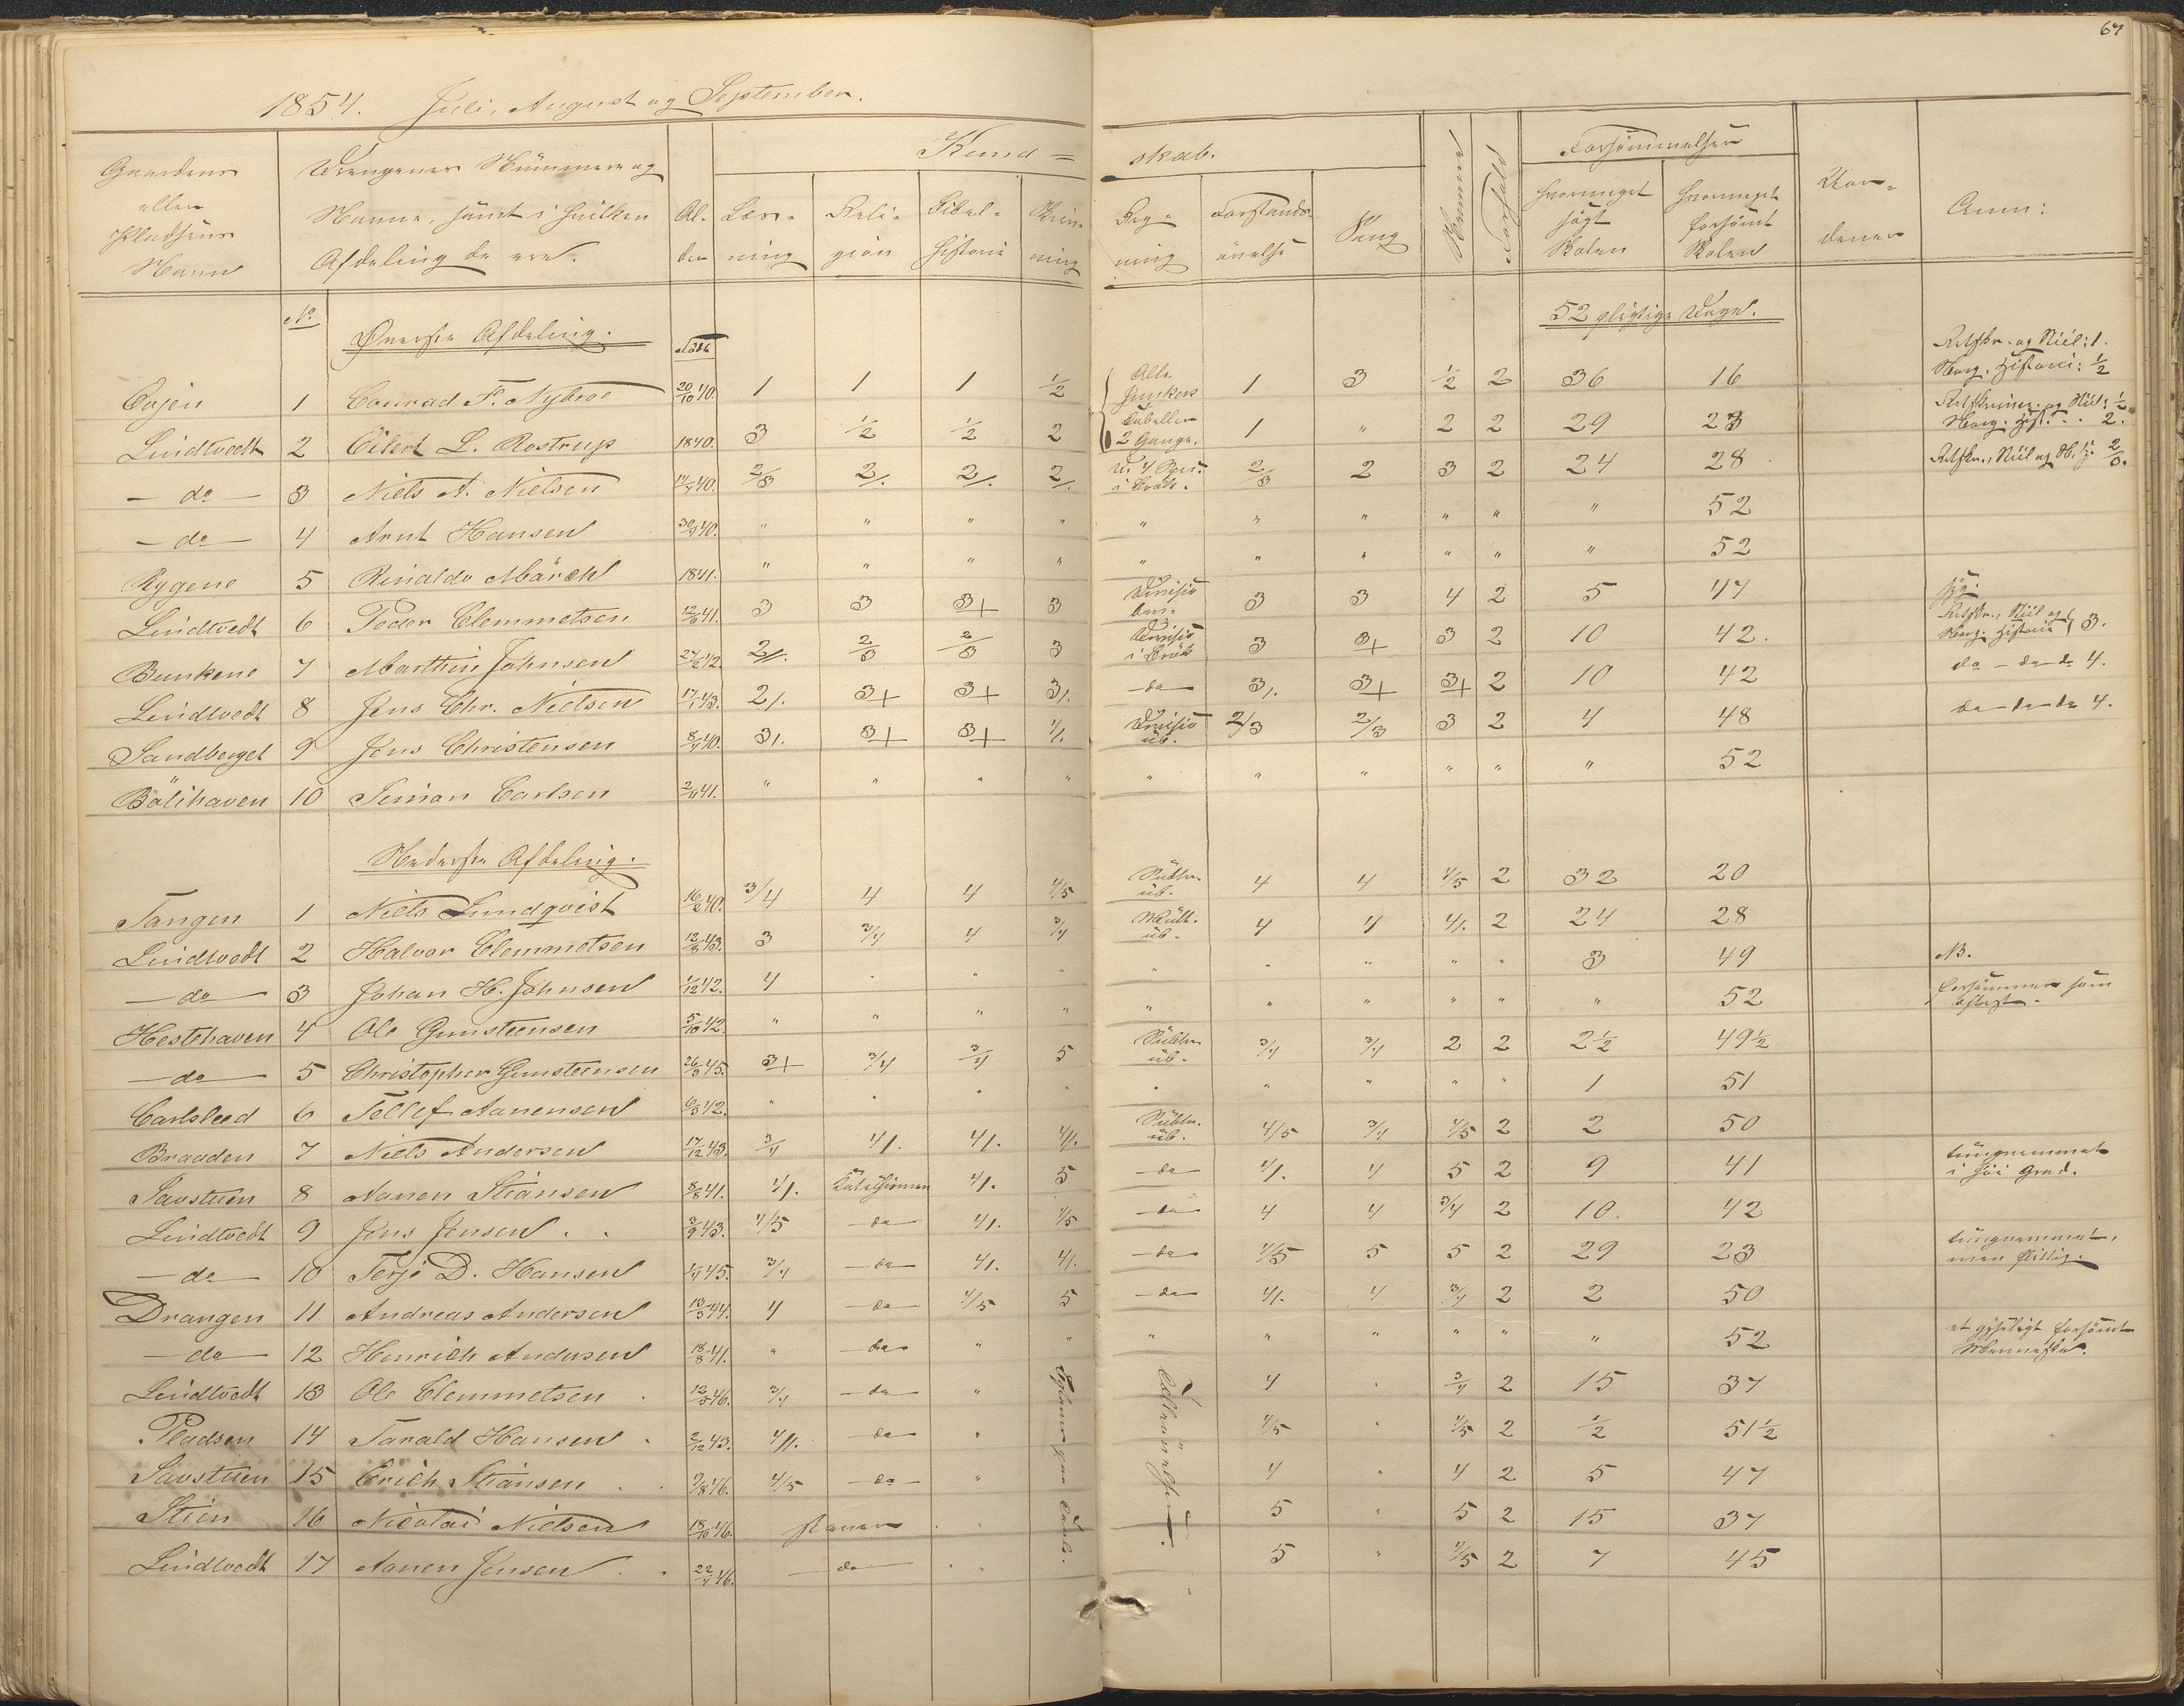 67
1854. Juli, August og September.
Gaardens eller Pladsens Navn
Drengenes Nummere og Navne, samt i hvilken Afdeling de ere.
Al- der
Kund = skab.
Læs- ning
Reli- gion
Bibel- historie
Skriv- ning
Reg- ning
Forstands- øvelse
Sang
Nemme
Forhold
Forsømmelser
hvormeget søgt Skolen
hvormeget forsømt Skolen
Anm:
No
Øverste Afdeling.
Født
52 pligtige Dage.
Retskr. og Stiil: 1.
1 Conrad F. Nybroe 20/10 40. 1 1 1 1/2 Alle 1 3 1/2 2 36 16 Norg. Historie: 1/2
Lindtvedt 2 Eilert L. Rostrup 1840. 3 1/2 1/2 2 Tabellen 2 Gange. 1 " 2 2 29 23 2.
- do - 3 Niels A. Nielsen 40. 2/3 2/. 2/. 2/. 2/3 2 3 2 24 28 2/3.
- do - 4 Arnt Hansen 40. " " " " " " " " " " 52
Rygene 5 Rinaldo Mårch 1841. " " " " " " " " " " 52
Lindtvedt 6 Peder Clemmetsen 41. 3 3 3+ 3 Divisio 3 3 4 2 5 47
Bunkene 7 Marthin Johnsen 42. 2//. 2/3 2/3 3 Divisio i Brøk 3 3+ 3 2 10 42. Retskr., Stiil og Norg. Historie 3.
Lindtvedt 8 Jens Chr. Nielsen 17/1 43. 2/. 3+ 3+ 3/. - do 3/. 3+ 3+ 2 10 42 do - do do 4.
Sandberget 9 Jens Christensen 40. 3/. 3+ 3+ 4/. Divisio üb. 2/3 2/3 3 2 4 48 do do do 4.
Bälihaven 10 Simon Carlsen 41. " " " " " " " " " " 52
Nederste Afdeling.
Tangen 1 Niels Lundqvist 16/2 40. 3/4 4 4 4/5 üb. 4 4 4/5 2 32 20
Lindtvedt 2 Halvor Clemmetsen 12/8 43. 3 3/4 4 3/4 Mult. üb. 4 4 4/. 2 24 28
- do - 3 Johan H. Johnsen 1/12 42. 4 " " " " " " " " 3 49 NB.
Hestehaven 4 Ole Gunsteensen 5/10 42. " " " " " " " " " " 52 forsømmer som oftest.
- do - 5 Christopher Gunsteensen 26/3 45. 3+ 3/4 3/4 5 üb. 3/4 3/4 2 2 2 1/2 49 1/2
Carlsleed 6 Tellef Aanensen 6/3 42. " " " " " " " " " 1 51
Braaden 7 Niels Andersen 17/12 43. 3/4 4/. 4/. 4/. üb. 4/5 3/4 4/5 2 2 50
Savstuen 8 Aanen Stiansen 8/8 41. 4/. 4/. 5 - do 4/. 4 5 2 9 41 tungnemmet i høi Grad.
Lindtvedt 9 Jens Jensen . . 3/9 43. 4/5 - do - 4/. 4/5 - do 4 4 3/4 2 10. 42
- do - 10 Terje D. Hansen 45. 3/4 - do - 4/. 4/. - do 4/5 5 5 2 29 23 tungnemmet, men flittig.
Drangen 11 Andreas Andersen 13/3 44. 4 - do - 4/5 5 - do 4/. 4 3/4 2 2 50
- do 12 Henrich Andersen 18/8 41. " - do - " " " " " " " " 52 et gyseligt forsømt Menneske.
Lindtvedt 13 Ole Clemmetsen . 12/3 46. 3/4 - do - " 4 " 3/4 2 15 37
Pladsen 14 Tarald Hansen . 2/12 43. 4/. - do - " 4/5 " 4/5 2 1/2 51 1/2
Savstuen 15 Erich Stiansen . . 46. 4/5 - do - " 4 " 4 2 5 47
Stien 16 Nicolai Nielsen 18/10 46. staver " 5 " 5 2 15 37
Lindtvedt 17 Aanen Jensen . . 46. do " 5 " 4/5 2 7 45